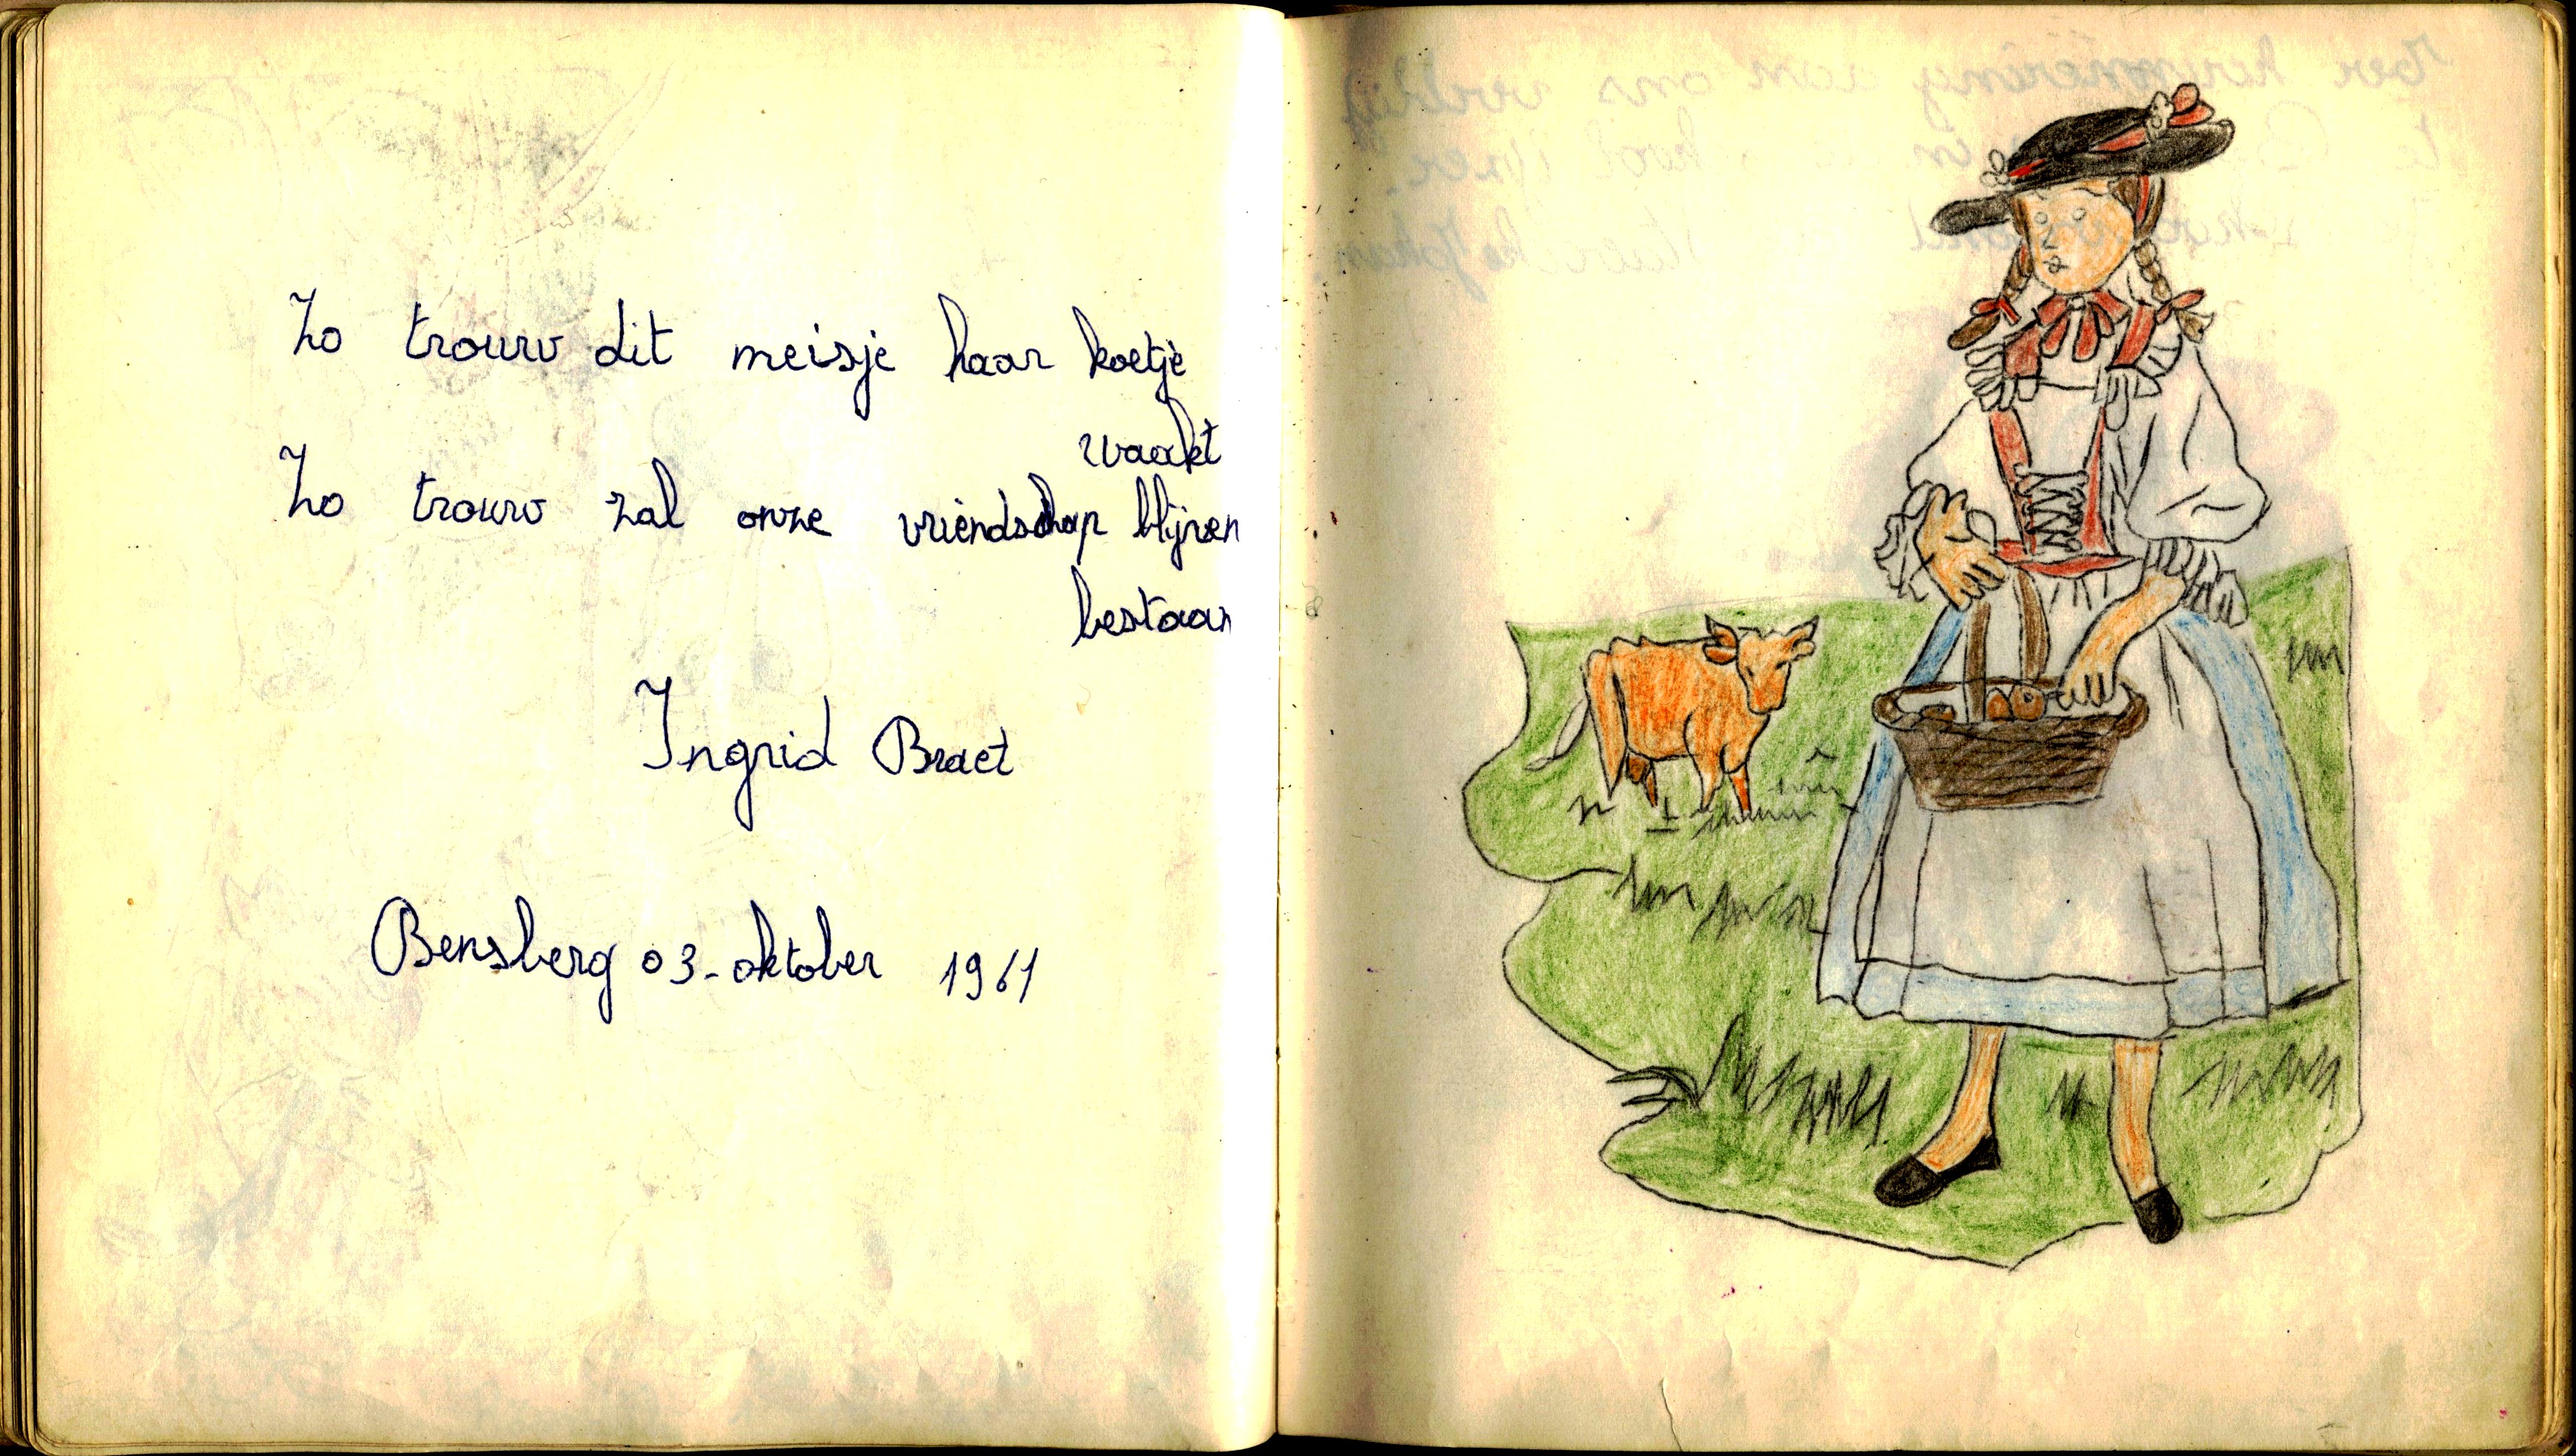 Zo trouw dit meisje haar koetje
waakt
Zo trouw zal onze vriendschap blijven
bestaan
Ingrid Braet
Bensberg 03-oktober 1961
Ter herinnering aan ons verblijf
te